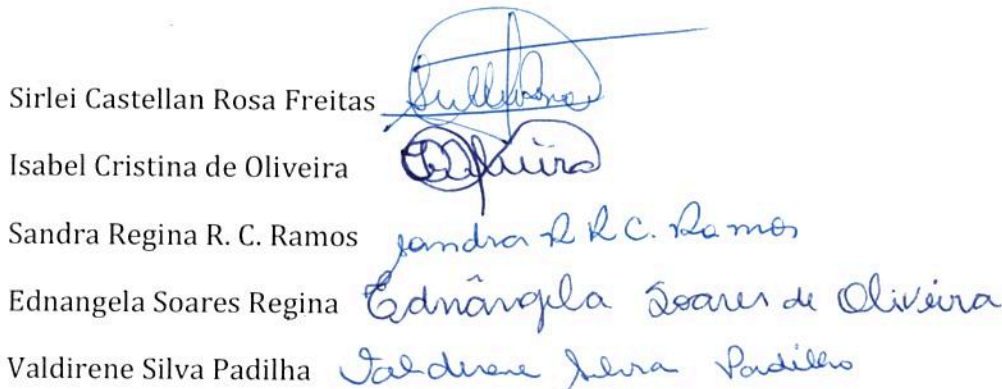 Sirlei Castellan Rosa Freitas
Isabel Cristina de Oliveira
Sandra Regina R. C. Ramos Sandra R R C. Ramos
Ednangela Soares Regina Ednângela Soares de Oliveira
Valdirene Silva Padilha Valdirene Silva Padilha